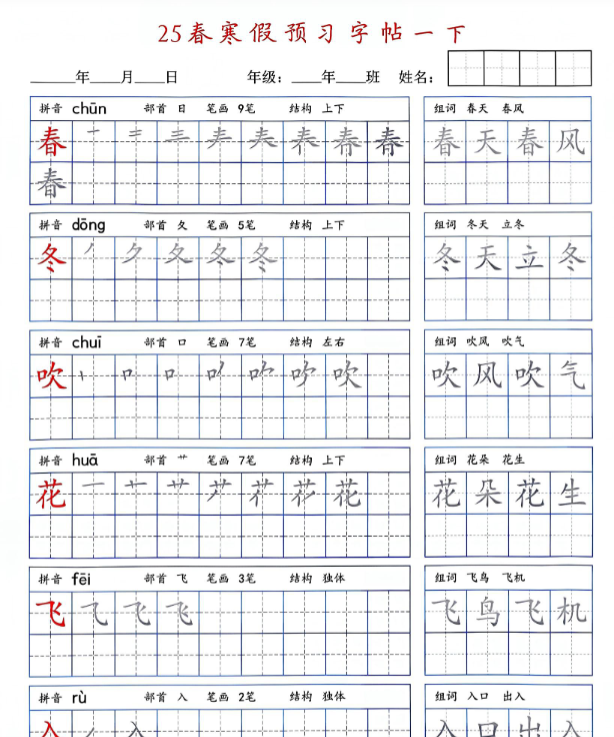 25春寒假预习字帖一下
______年____月____日 年级:____年____班 姓名:
拼音 chūn 部首 日 笔画 9笔 结构 上下 组词 春天 春风
春 一 二 三 𡗗 春 春天春风
春
拼音 dōng 部首 夂 笔画 5笔 结构 上下 组词 冬天 立冬
冬 丿 ク 夂 冬 冬 冬天立冬
拼音 chuī 部首 口 笔画 7笔 结构 左右 组词 吹风 吹气
吹 丨 口 吹 吹风吹气
拼音 huā 部首 艹 笔画 7笔 结构 上下 组词 花朵 花生
花 一 艹 花 花朵花生
拼音 fēi 部首 飞 笔画 3笔 结构 独体 组词 飞鸟 飞机
飞 乁 飞 飞鸟飞机
拼音 rù 部首 入 笔画 2笔 结构 独体 组词 入口 出入
入 丿 入 入口出入